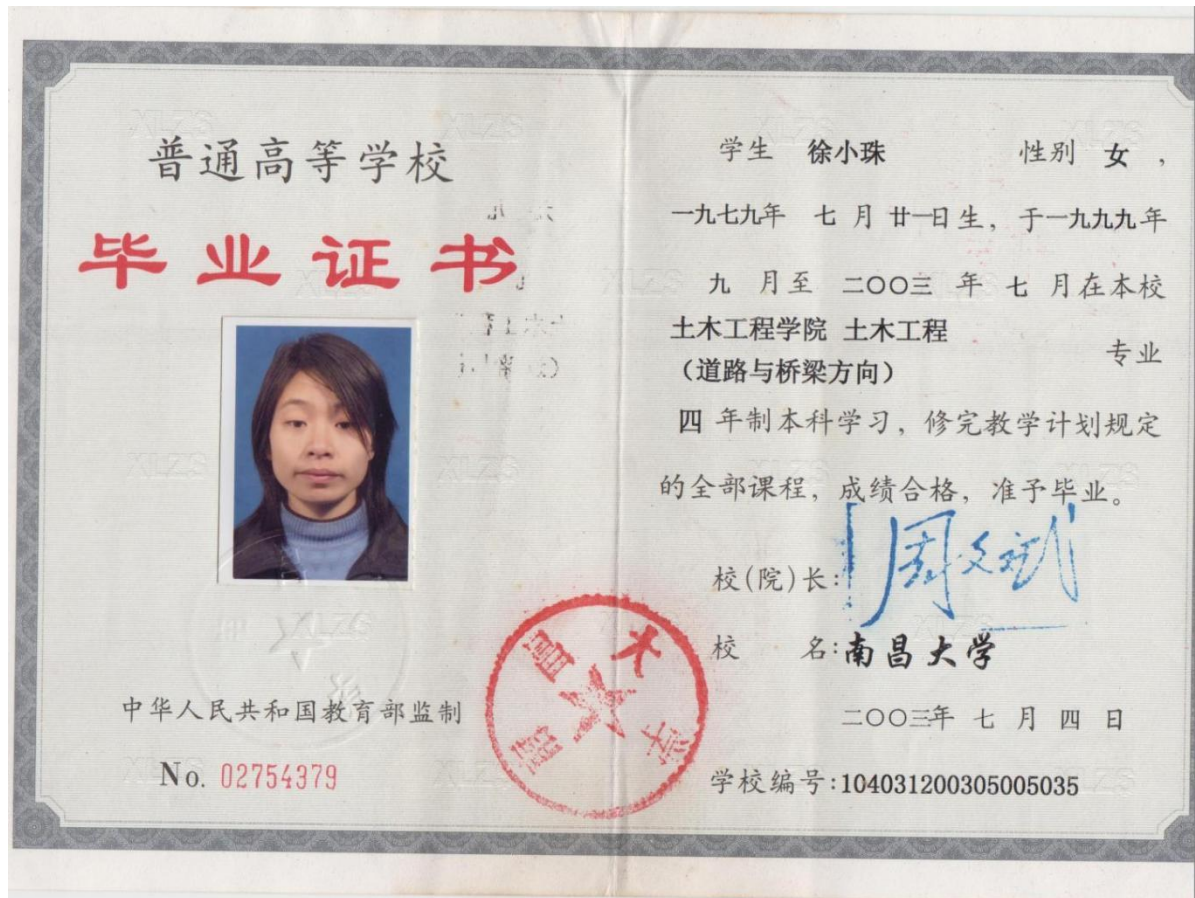 普通高等学校
毕业证书
中华人民共和国教育部监制
No. 02754379
学生 徐小珠 性别 女 ,
一九七九年 七 月 廿一日生, 于一九九九年
九 月至 二〇〇三 年 七 月在本校
土木工程学院 土木工程
(道路与桥梁方向) 专业
四 年制本科学习, 修完教学计划规定
的全部课程, 成绩合格, 准予毕业。
校(院)长: 周文斌
校 名: 南昌大学
二〇〇三年 七 月 四 日
学校编号:104031200305005035
南昌大学
XLZS